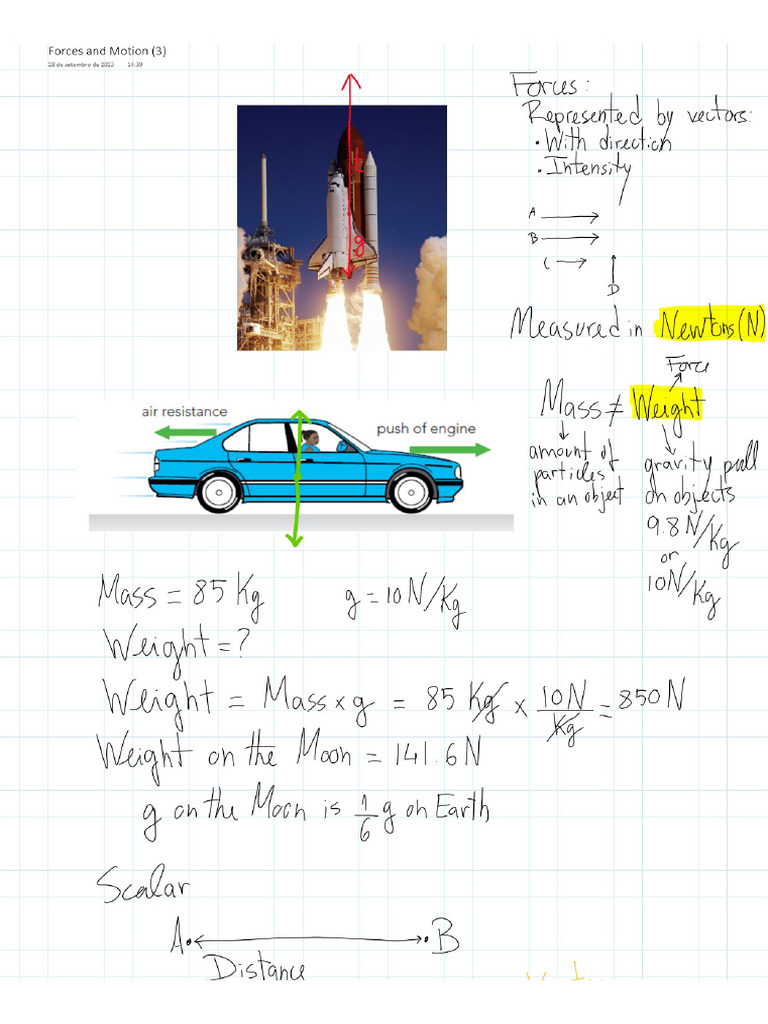 Forces and Motion (3)
28 de setembro de 2023 14:39
Forces:
Represented by vectors:
• With direction
• Intensity
A
B
C
D
g
Measured in Newtons (N)
Force
Mass ≠ Weight
amount of
particles
in an object
gravity pull
on objects
9.8N/Kg
or
10N/Kg
air resistance
push of engine
Mass = 85 Kg g = 10N/Kg
Weight = ?
Weight = Mass x g = 85 Kg x 10N/Kg = 850N
Weight on the Moon = 141.6N
g on the Moon is 1/6 g on Earth
Scalar
A B
Distance